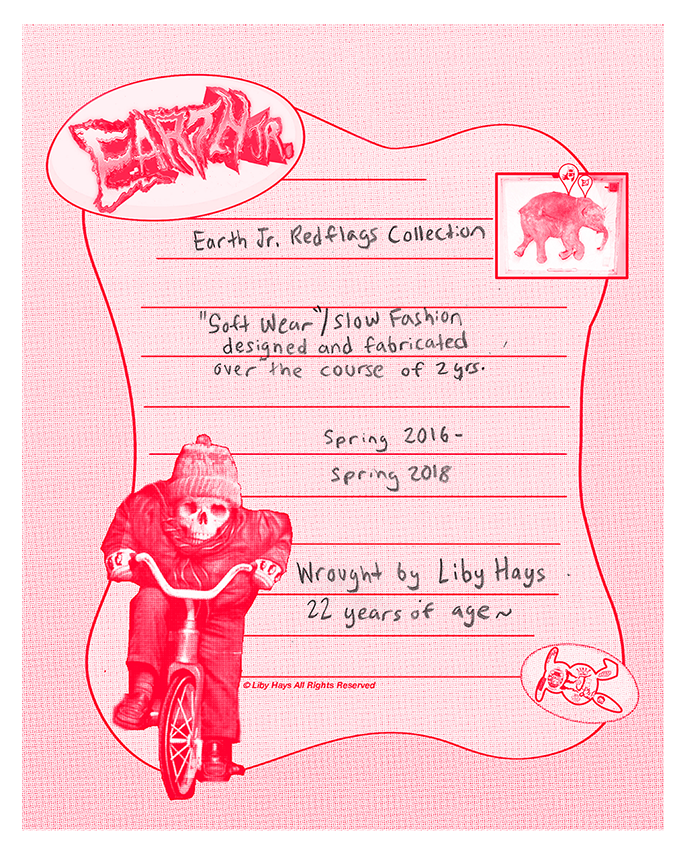 EARTH JR.
Earth Jr. Redflags Collection
"Soft Wear"/Slow Fashion
designed and fabricated
over the course of 2 yrs.
Spring 2016-
Spring 2018
Wrought by Liby Hays
22 years of age~
© Liby Hays All Rights Reserved